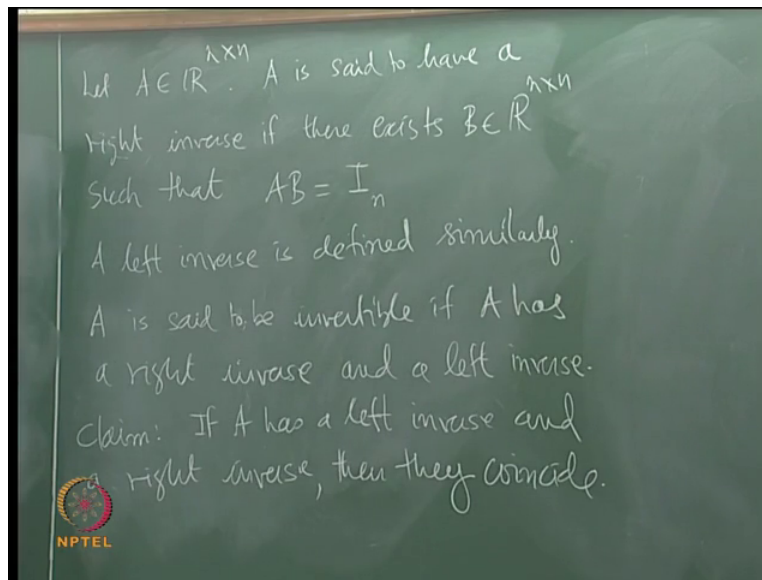 Let A ∈ ℝ^{n×n}. A is said to have a
right inverse if there exists B ∈ ℝ^{n×n}
such that AB = I_n
A left inverse is defined similarly.
A is said to be invertible if A has
a right inverse and a left inverse.
Claim: If A has a left inverse and
a right inverse, then they coincide.
NPTEL